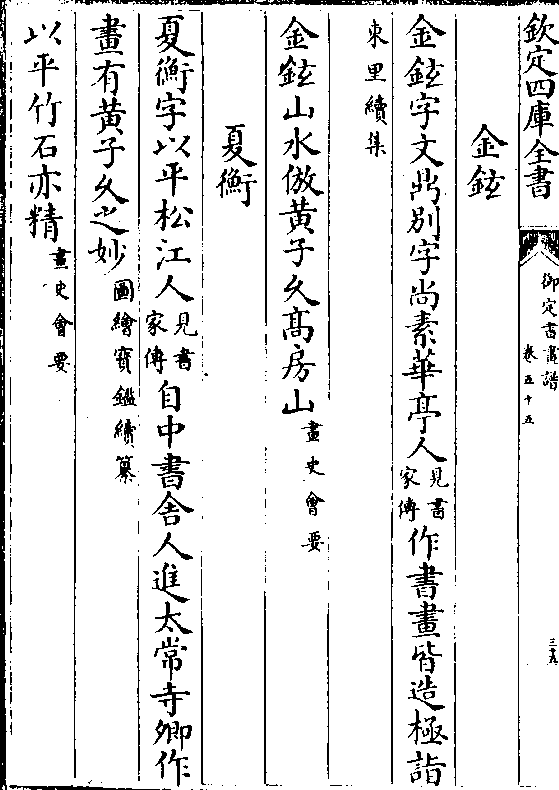 欽定四庫全書
御定書畫譜
卷五十五
三十九
金鉉
金鉉字文鼎別字尚素華亭人見書家傳作書畫皆造極詣
東里續集
金鉉山水倣黃子久高房山畫史會要
夏衡
夏衡字以平松江人見書家傳自中書舍人進太常寺卿作
畫有黃子久之妙圖繪寶鑑續纂
以平竹石亦精畫史會要